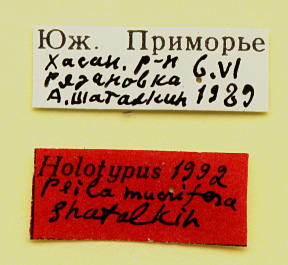 Юж. Приморье
Хасан. р-н 6.VI
Рязановка
А.Шаталкин 1989
Holotypus 1992
Psila mucrifera
Shatalkin